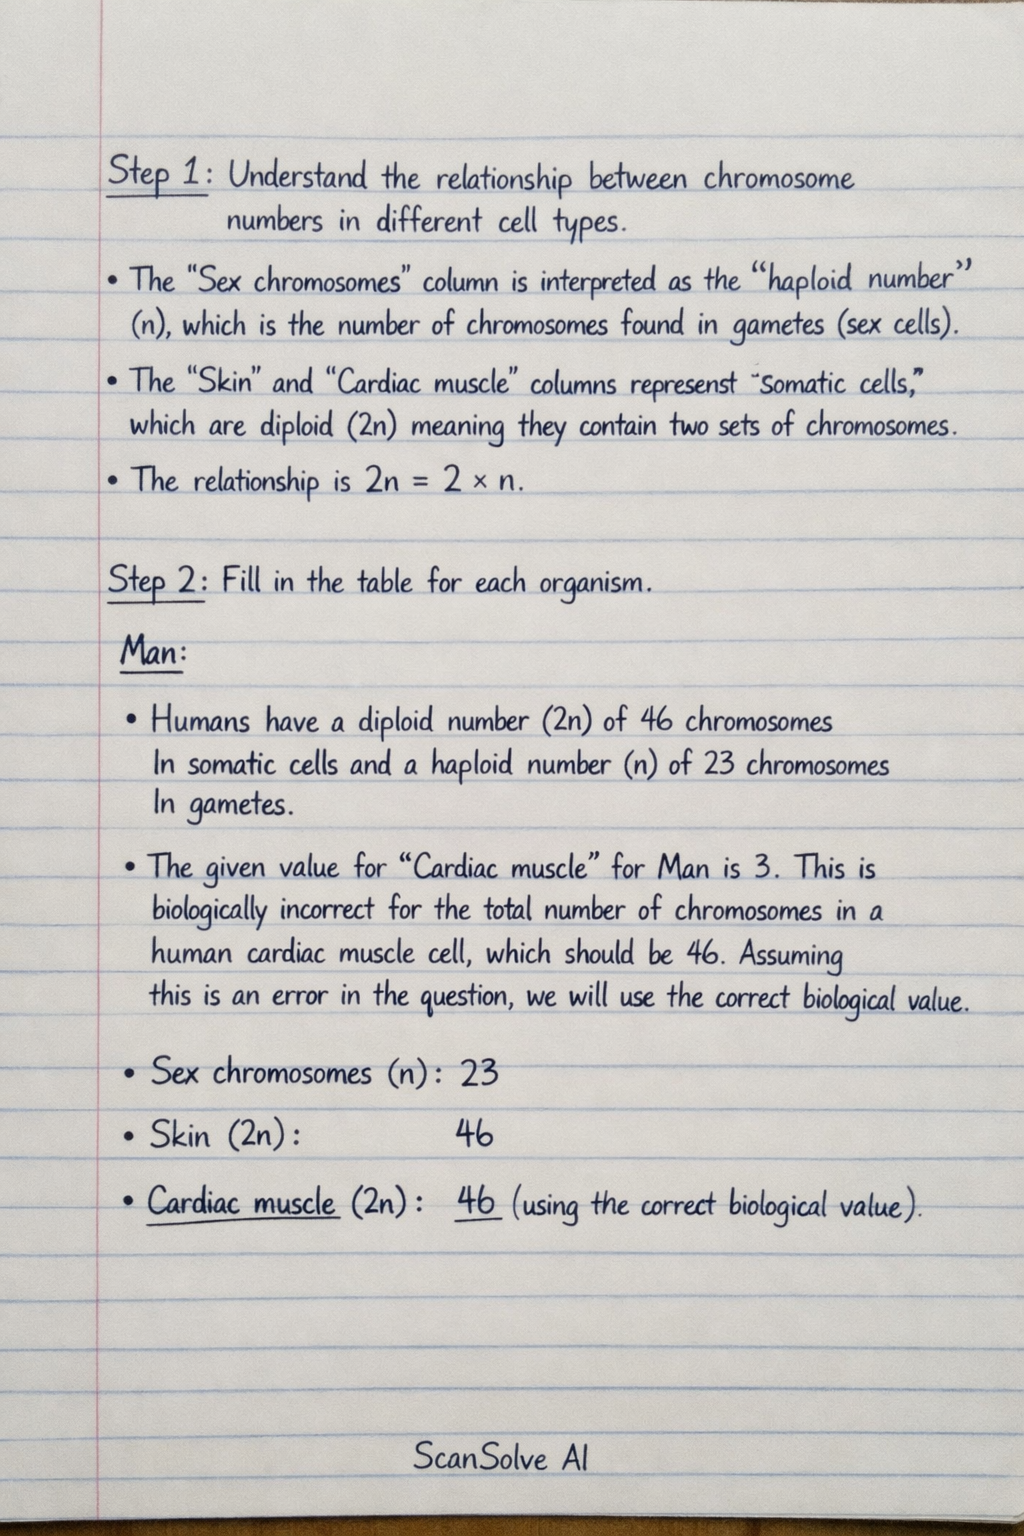 Step 1: Understand the relationship between chromosome
numbers in different cell types.
• The “Sex chromosomes” column is interpreted as the “haploid number”
(n), which is the number of chromosomes found in gametes (sex cells).
• The “Skin” and “Cardiac muscle” columns represenst “somatic cells,”
which are diploid (2n) meaning they contain two sets of chromosomes.
• The relationship is 2n = 2 × n.
Step 2: Fill in the table for each organism.
Man:
• Humans have a diploid number (2n) of 46 chromosomes
In somatic cells and a haploid number (n) of 23 chromosomes
In gametes.
• The given value for “Cardiac muscle” for Man is 3. This is
biologically incorrect for the total number of chromosomes in a
human cardiac muscle cell, which should be 46. Assuming
this is an error in the question, we will use the correct biological value.
• Sex chromosomes (n): 23
• Skin (2n): 46
• Cardiac muscle (2n): 46 (using the correct biological value).
ScanSolve AI